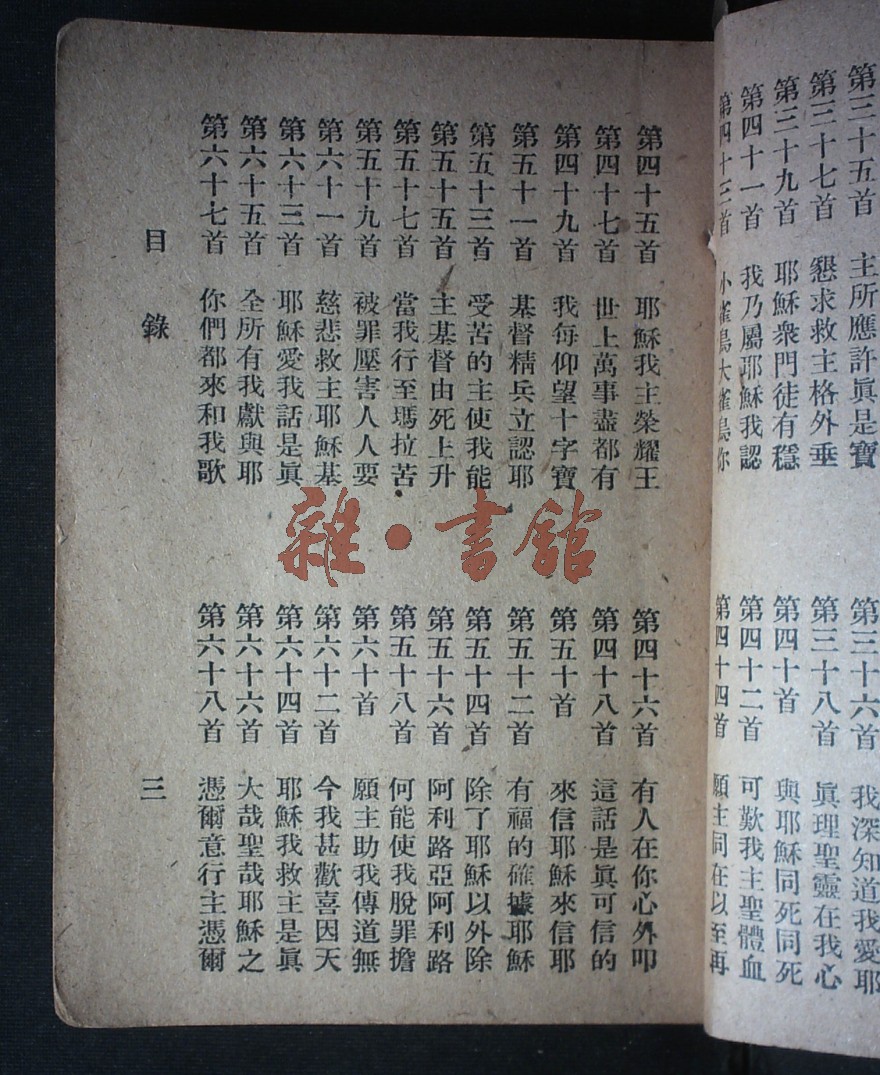 第三十五首　主所應許眞是寶
第三十六首　我深知道我愛耶
第三十七首　懇求救主格外垂
第三十八首　眞理聖靈在我心
第三十九首　耶穌衆門徒有穩
第四十首　與耶穌同死同死
第四十一首　我乃屬耶穌我認
第四十二首　可歎我主聖體血
第四十三首　小雀鳥大雀鳥你
第四十四首　願主同在以至再
第四十五首　耶穌我主榮耀王
第四十六首　有人在你心外叩
第四十七首　世上萬事盡都有
第四十八首　這話是眞可信的
第四十九首　我每仰望十字寶
第五十首　來信耶穌來信耶
第五十一首　基督精兵立認耶
第五十二首　有福的確據耶穌
第五十三首　受苦的主使我能
第五十四首　除了耶穌以外除
第五十五首　主基督由死上升
第五十六首　阿利路亞阿利路
第五十七首　當我行至瑪拉苦
第五十八首　何能使我脫罪擔
第五十九首　被罪壓害人人要
第六十首　願主助我傳道無
第六十一首　慈悲救主耶穌基
第六十二首　今我甚歡喜因天
第六十三首　耶穌愛我話是眞
第六十四首　耶穌我救主是眞
第六十五首　全所有我獻與耶
第六十六首　大哉聖哉耶穌之
第六十七首　你們都來和我歌
第六十八首　憑爾意行主憑爾
目錄　三
雜·書館